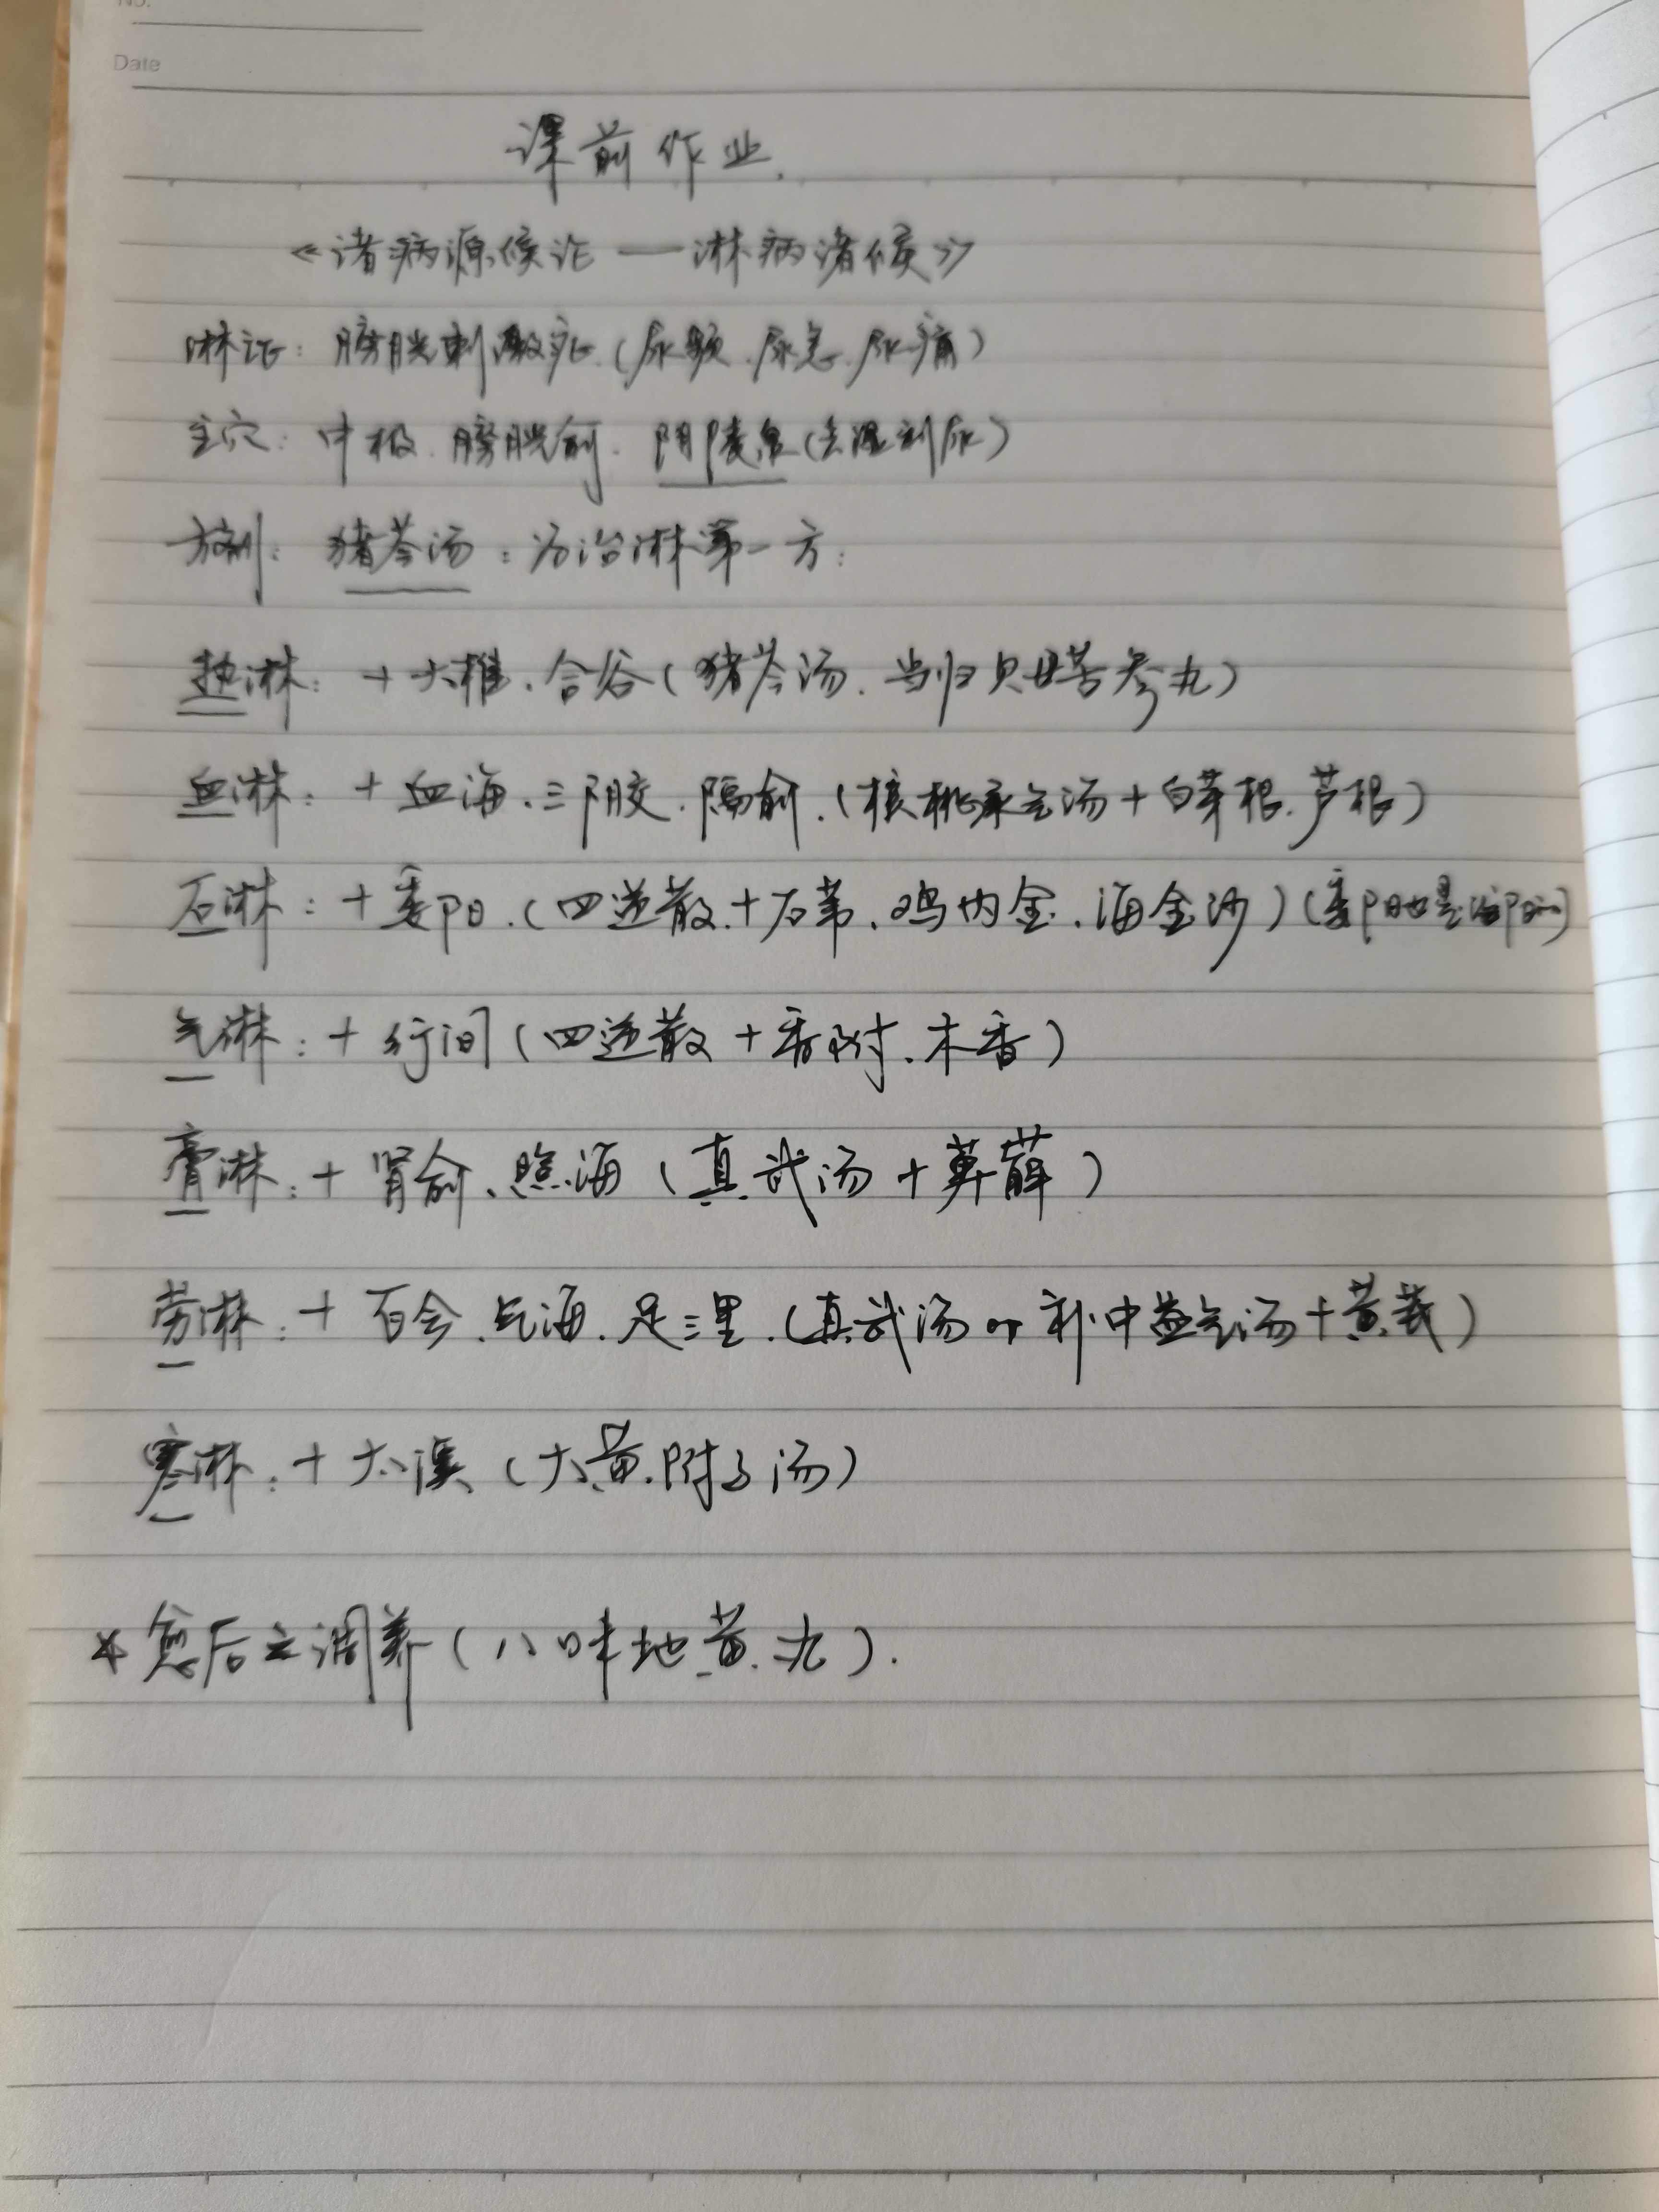 No.
Date
课前作业.
《诸病源候论——淋病诸候》
淋证：膀胱刺激症.(尿频.尿急.尿痛)
主穴：中极.膀胱俞.阴陵泉(去湿利尿)
方剂：猪苓汤：为治淋第一方：
热淋：+大椎.合谷(猪苓汤.当归贝母苦参丸)
血淋：+血海.三阴胶.隔俞.(核桃承气汤+白茅根.芦根)
石淋：+委阳.(四逆散+石苇.鸡内金.海金沙)(委阳也是治阳)
气淋：+行间(四逆散+香附.木香)
膏淋：+肾俞、照海(真武汤+萆薢)
劳淋：+百会.气海.足三里.(真武汤or补中益气汤+黄芪)
寒淋：+太溪(大黄.附子汤)
☆愈后之调养(八味地黄丸).